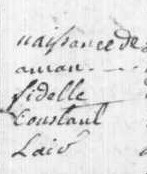 naissance de
aman
fidelle
Constant
Laiv